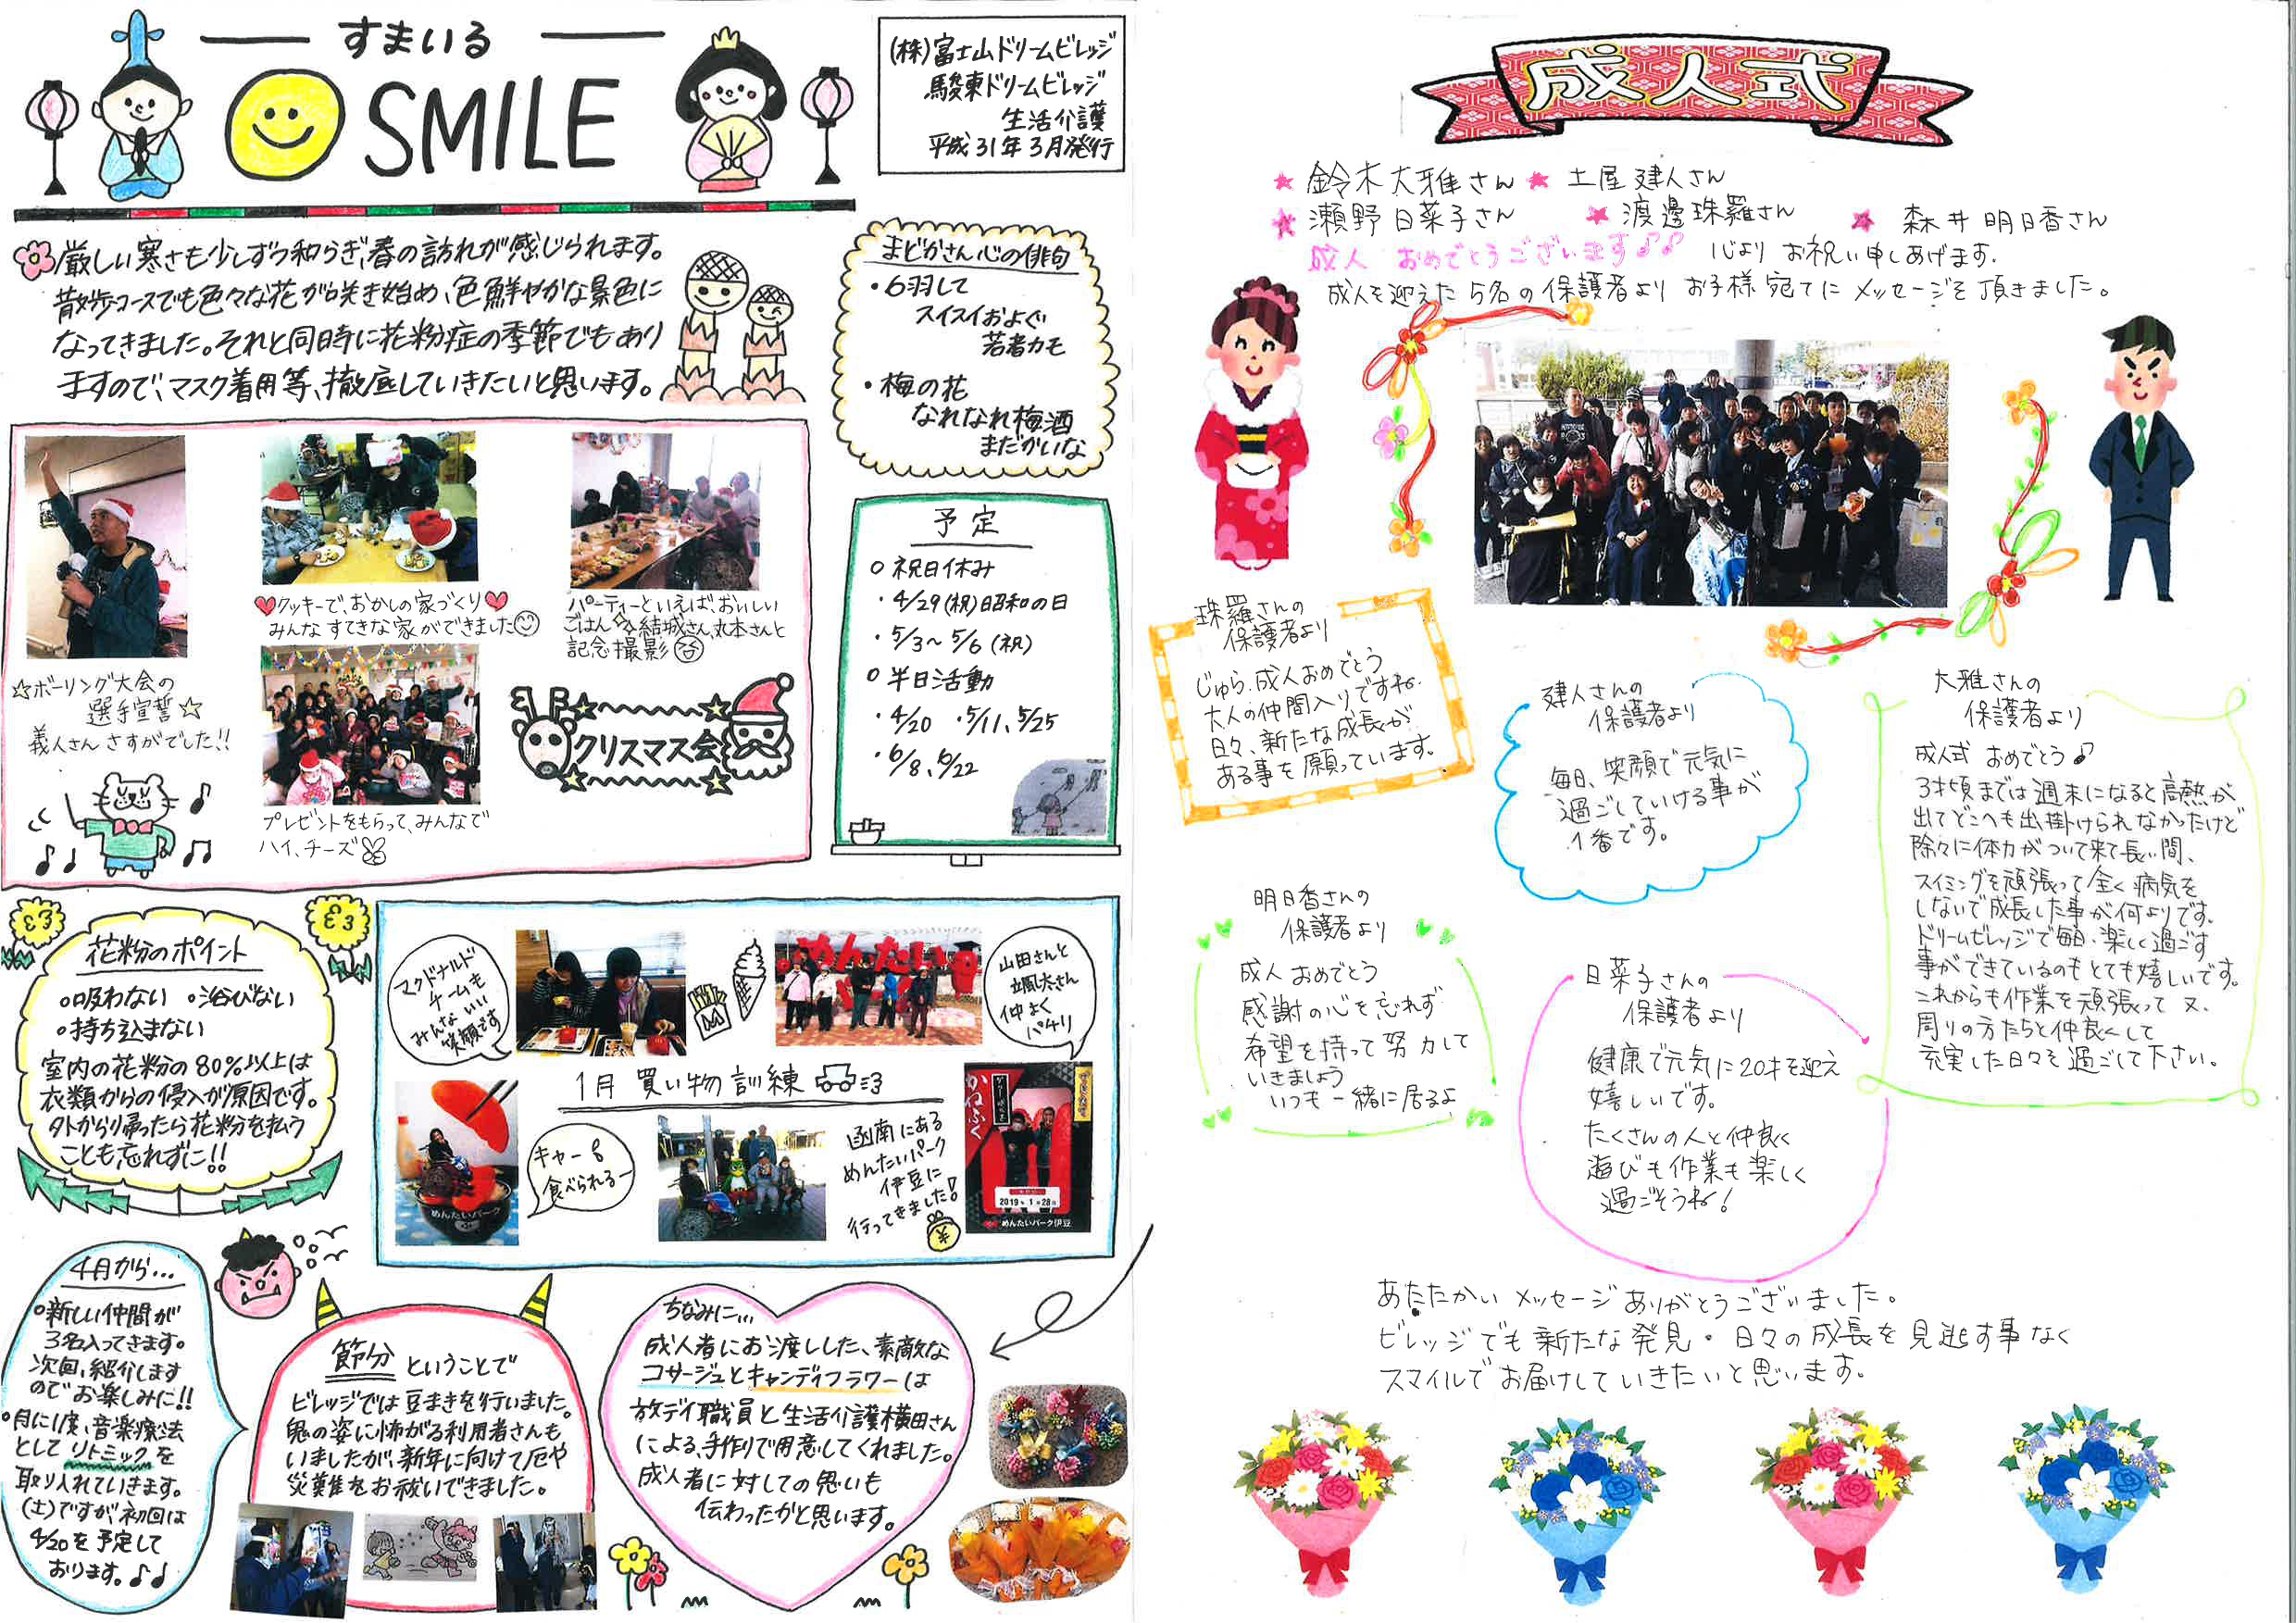 すまいる
SMILE
(株)富士山ドリームビレッジ
駿東ドリームビレッジ
生活介護
平成31年3月発行
厳しい寒さも少しずつ和らぎ、春の訪れが感じられます。
散歩コースでも色々な花が咲き始め、色鮮やかな景色に
なってきました。それと同時に花粉症の季節でもあり
ますので、マスク着用等、徹底していきたいと思います。
まどかさん心の俳句
・6羽して
スイスイおよぐ
若者カモ
・梅の花
なれなれ梅酒
まだかいな
☆ボーリング大会の
選手宣誓☆
義人さん さすがでした!!
クッキーで、おかしの家づくり
みんな すてきな家ができました
パーティーといえば、おいしい
ごはん 結城さん、丸本さんと
記念撮影
プレゼントをもらって、みんなで
ハイ、チーズ
クリスマス会
予定
○祝日休み
・4/29(祝)昭和の日
・5/3～5/6(祝)
○半日活動
・4/20 ・5/11、5/25
・6/8、6/22
花粉のポイント
○吸わない ○浴びない
○持ち込まない
室内の花粉の80%以上は
衣類からの侵入が原因です。
外から帰ったら花粉を払う
ことも忘れずに!!
マクドナルド
チームも
みんないい
笑顔です
山田さんと
颯太さん
仲よく
パチリ
めんたい
1月 買い物訓練
キャー
食べられるー
めんたいパーク
函南にある
めんたいパーク
伊豆に
行ってきました!
かねふく
2019年1月28日
めんたいパーク伊豆
4月から…
○新しい仲間が
3名入ってきます。
次回、紹介します
ので お楽しみに!!
○月に1度、音楽療法
として リトミックを
取り入れていきます。
(土)ですが 初回は
4/20を予定して
おります。♪♪
節分 ということで
ビレッジでは豆まきを行いました。
鬼の姿に怖がる利用者さんも
いましたが、新年に向けて厄や
災難をお祓いできました。
ちなみに…
成人者にお渡しした、素敵な
コサージュとキャンディフラワーは
放デイ職員と生活介護横田さん
による、手作りで用意してくれました。
成人者に対しての思いも
伝わったかと思います。
成人式
★鈴木大雅さん ★土屋建人さん
★瀬野日菜子さん ★渡邊珠羅さん ★森井明日香さん
成人 おめでとうございます♪♪ 心より お祝い申しあげます。
成人を迎えた5名の保護者より お子様宛てに メッセージを頂きました。
珠羅さんの
保護者より
じゅら、成人おめでとう
大人の仲間入りですね。
日々、新たな成長が
ある事を願っています。
建人さんの
保護者より
毎日、笑顔で元気に
過ごしていける事が
1番です。
大雅さんの
保護者より
成人式 おめでとう♪
3才頃までは週末になると高熱が
出てどこへも出掛けられなかったけど
除々に体力がついて来て長い間、
スイミングを頑張って全く病気を
しないで成長した事が何よりです。
ドリームビレッジで毎日、楽しく過ごす
事ができているのもとても嬉しいです。
これからも作業を頑張って 又、
周りの方たちと仲良くして
充実した日々を過ごして下さい。
明日香さんの
保護者より
成人 おめでとう
感謝の心を忘れず
希望を持って努力して
いきましょう
いつも一緒に居るよ
日菜子さんの
保護者より
健康で元気に20才を迎え
嬉しいです。
たくさんの人と仲良く
遊びも作業も楽しく
過ごそうね!
あたたかい メッセージありがとうございました。
ビレッジでも新たな発見・日々の成長を見逃す事なく
スマイルでお届けしていきたいと思います。